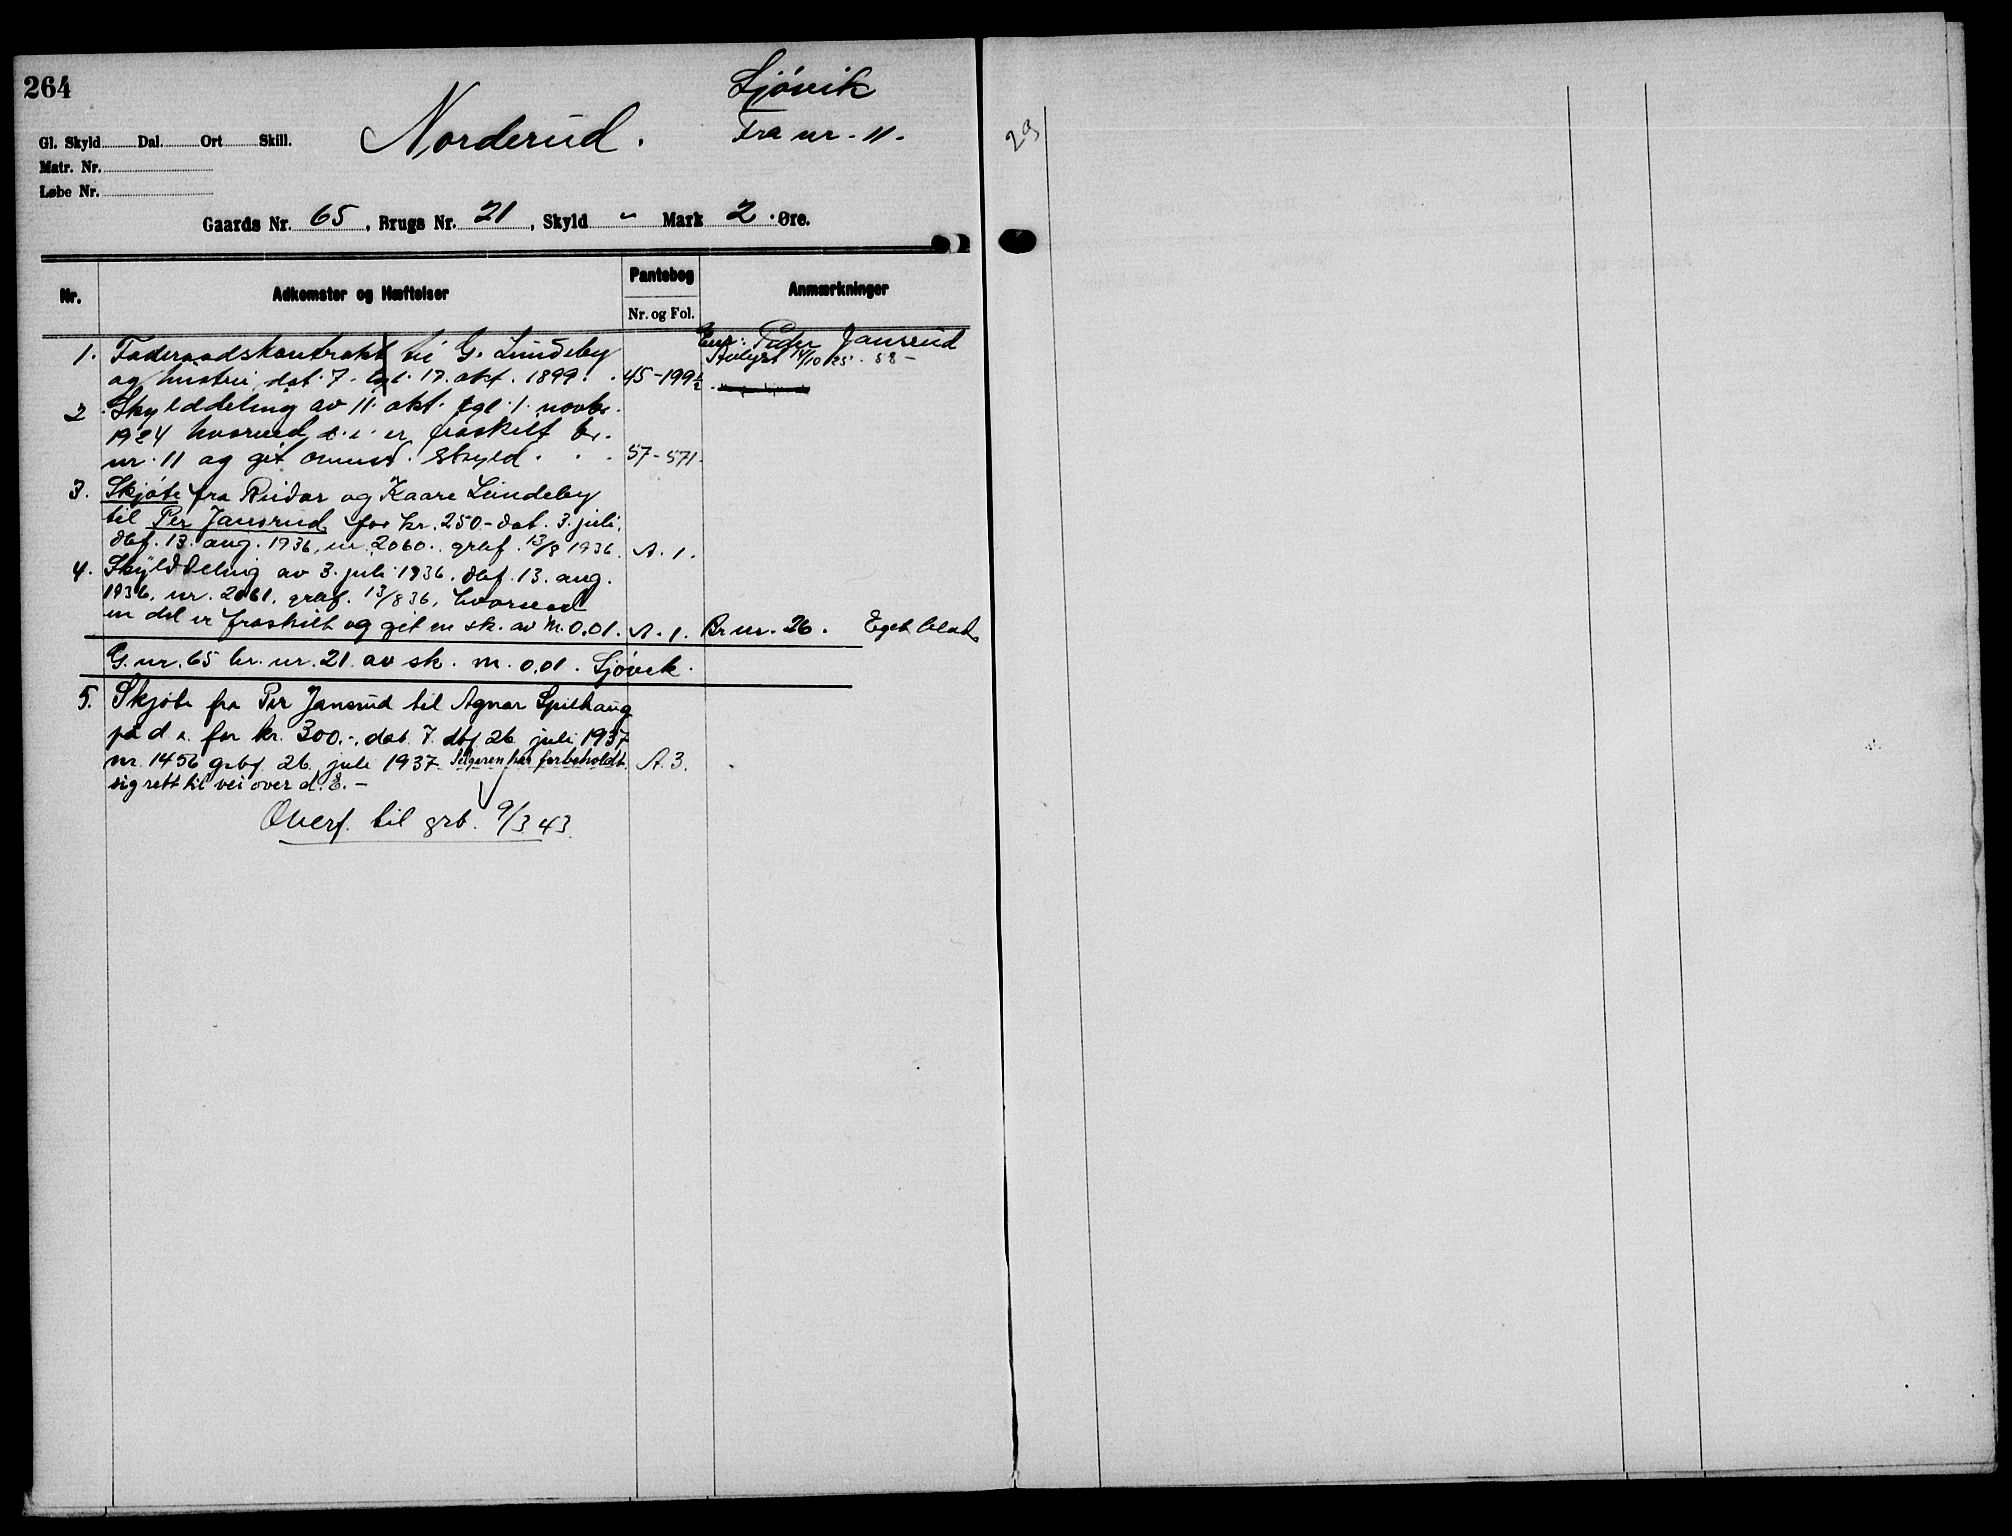 264
Sjövik
Norderud.
Fra nr. 11.
Gl. Skyld Dal. Ort Skill.
Matr. Nr.
Løbe Nr.
Gaards Nr. 65, Brugs Nr. 21, Skyld " Mark 2 Øre.
Nr. Adkomster og Hæftelser Pantebog Nr. og Fol. Anmærkninger
Peder Jansrud
1. Føderaadskontrakt til G. Lundeby
Avlyst 4/10 25. 58-
og hustru, dat. 7. tgl. 17. okt. 1899. 45-199½
2. Skylddeling av 11. okt. tgl. 1. novbr.
1924 hvorved d. e. er fraskilt br.
nr. 11 og git ommd. skyld. 57-571.
3. Skjøte fra Reidar og Kaare Lundeby
til Per Jansrud for kr. 250.- dat. 3. juli,
dbf. 13. aug. 1936, nr. 2060. grbf. 13/8 1936. A. 1.
4. Skylddeling av 3. juli 1936. dbf. 13. aug.
1936, nr. 2061. grbf. 13/8 36, hvorved
en del er fraskilt og git en sk. av M. 0.01. A. 1. Br nr. 26. Eget blad
G. nr. 65 br. nr. 21 av sk. m. 0.01. Sjövik.
5. Skjøte fra Per Jansrud til Agnar Spilhaug
på d. e. for kr. 300.-, dat. 7. dbf 26 juli 1937
nr. 1456 grbf. 26. juli 1937. Selgeren har forbeholdt A. 3.
sig rett til vei over d. E. -
Overf. til grb. 9/3 43.
29